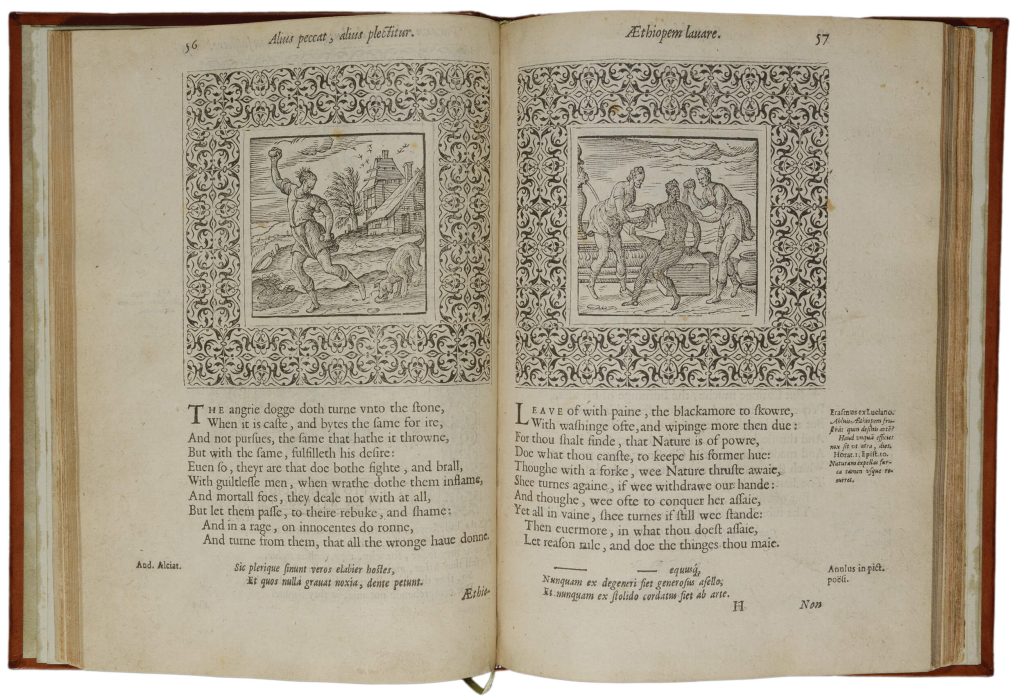 56
Alius peccat, alius plectitur.
THE angrie dogge doth turne vnto the ſtone,
When it is caſte, and bytes the ſame for ire,
And not purſues, the ſame that hathe it throwne,
But with the ſame, fulfilleth his deſire:
Euen ſo, theyr are that doe bothe fighte, and brall,
With guiltleſſe men, when wrathe dothe them inflame,
And mortall foes, they deale not with at all,
But let them paſſe, to theire rebuke, and ſhame:
And in a rage, on innocentes do ronne,
And turne from them, that all the wronge haue donne.
And. Alciat.
Sic plerique ſinunt veros elabier hoſtes,
Et quos nulla grauat noxia, dente petunt.
Æthio-
Æthiopem lauare.
57
LEAVE of with paine, the blackamore to ſkowre,
With waſhinge ofte, and wipinge more then due:
For thou ſhalt finde, that Nature is of powre,
Doe what thou canſte, to keepe his former hue:
Thoughe with a forke, wee Nature thruſte awaie,
Shee turnes againe, if wee withdrawe our hande:
And thoughe, wee ofte to conquer her aſſaie,
Yet all in vaine, ſhee turnes if ſtill wee ſtande:
Then euermore, in what thou doeſt aſſaie,
Let reaſon rule, and doe the thinges thou maie.
Eraſmus ex Luciano.
Abluis Æthiopem fru-
ſtrà: quin deſinis artẽ?
Haud vnquã efficies
nox ſit vt atra, dies.
Horat. 1. Epiſt. 10.
Naturam expellas fur-
ca tamen vſque re-
curret.
equusq́;
Nunquam ex degeneri fiet generoſus aſello;
Et nunquam ex ſtolido cordatus fiet ab arte.
Anulus in pict.
poëſi.
H
Non